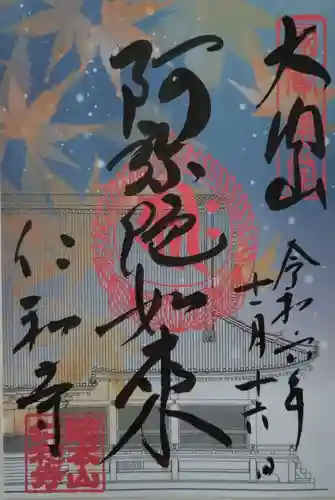 大内山
令和六年
十一月十六日
阿弥陀如来
仁和寺